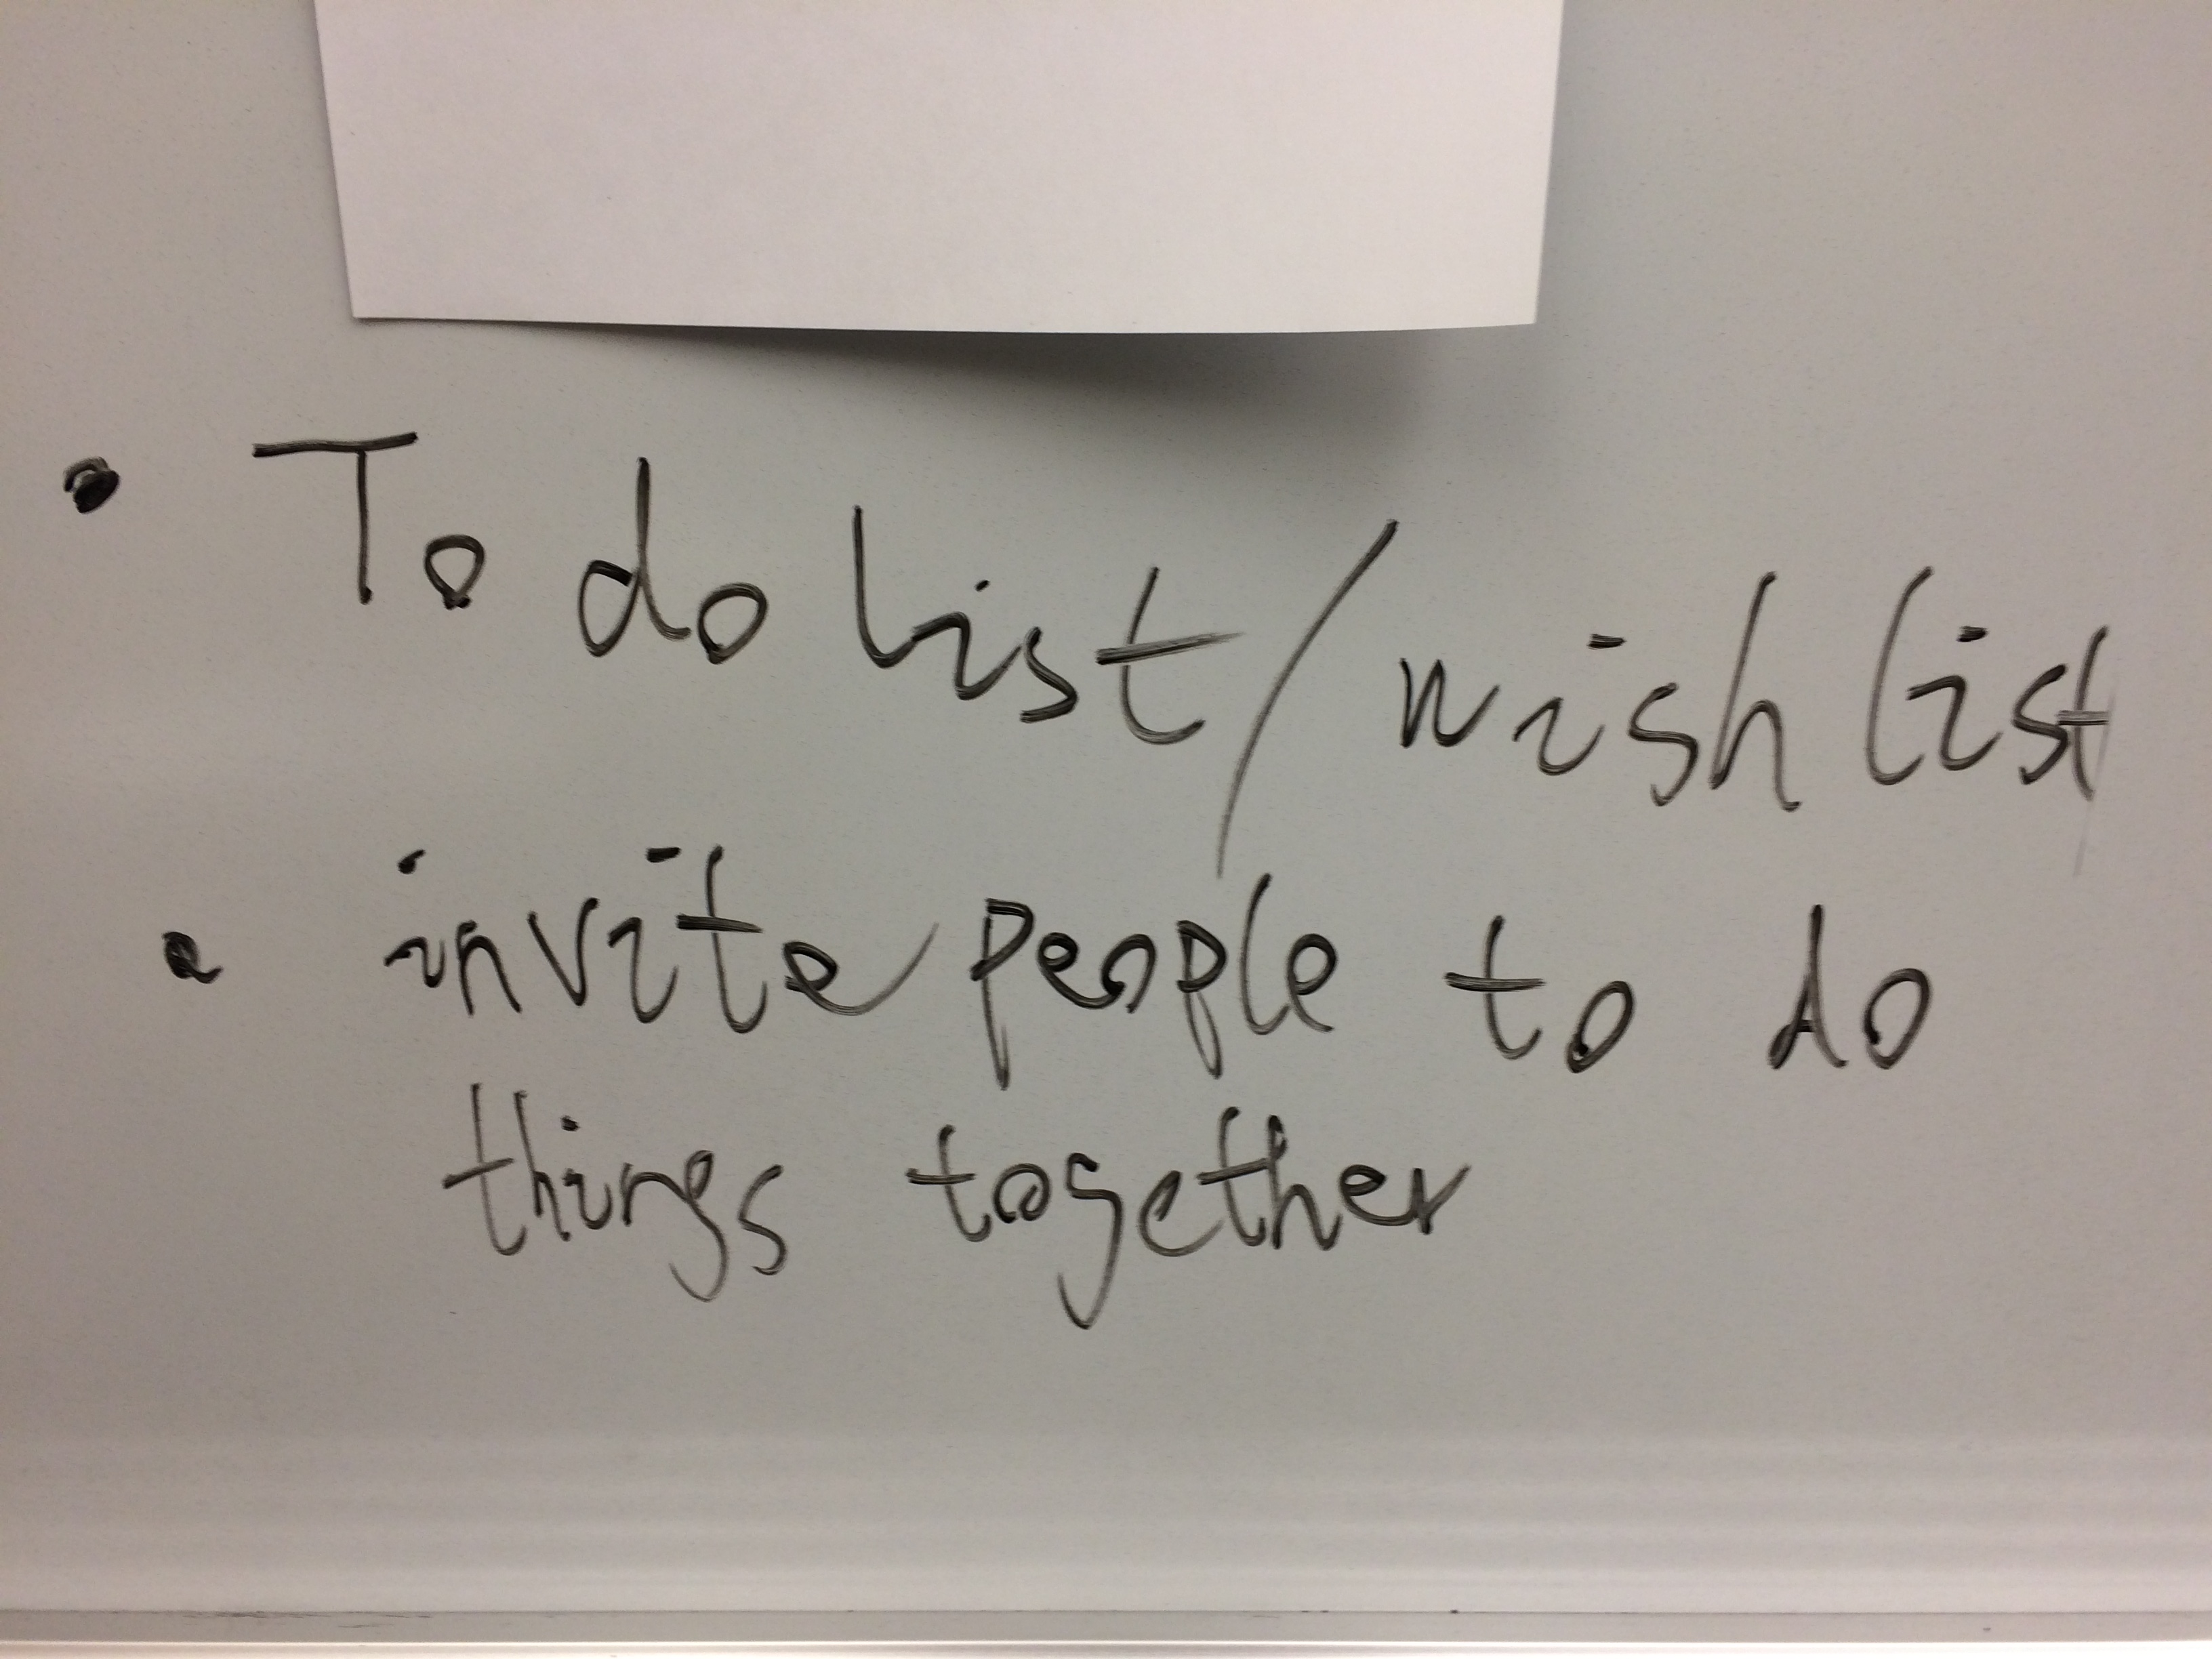 • To do list/wish list
• invite people to do
things together